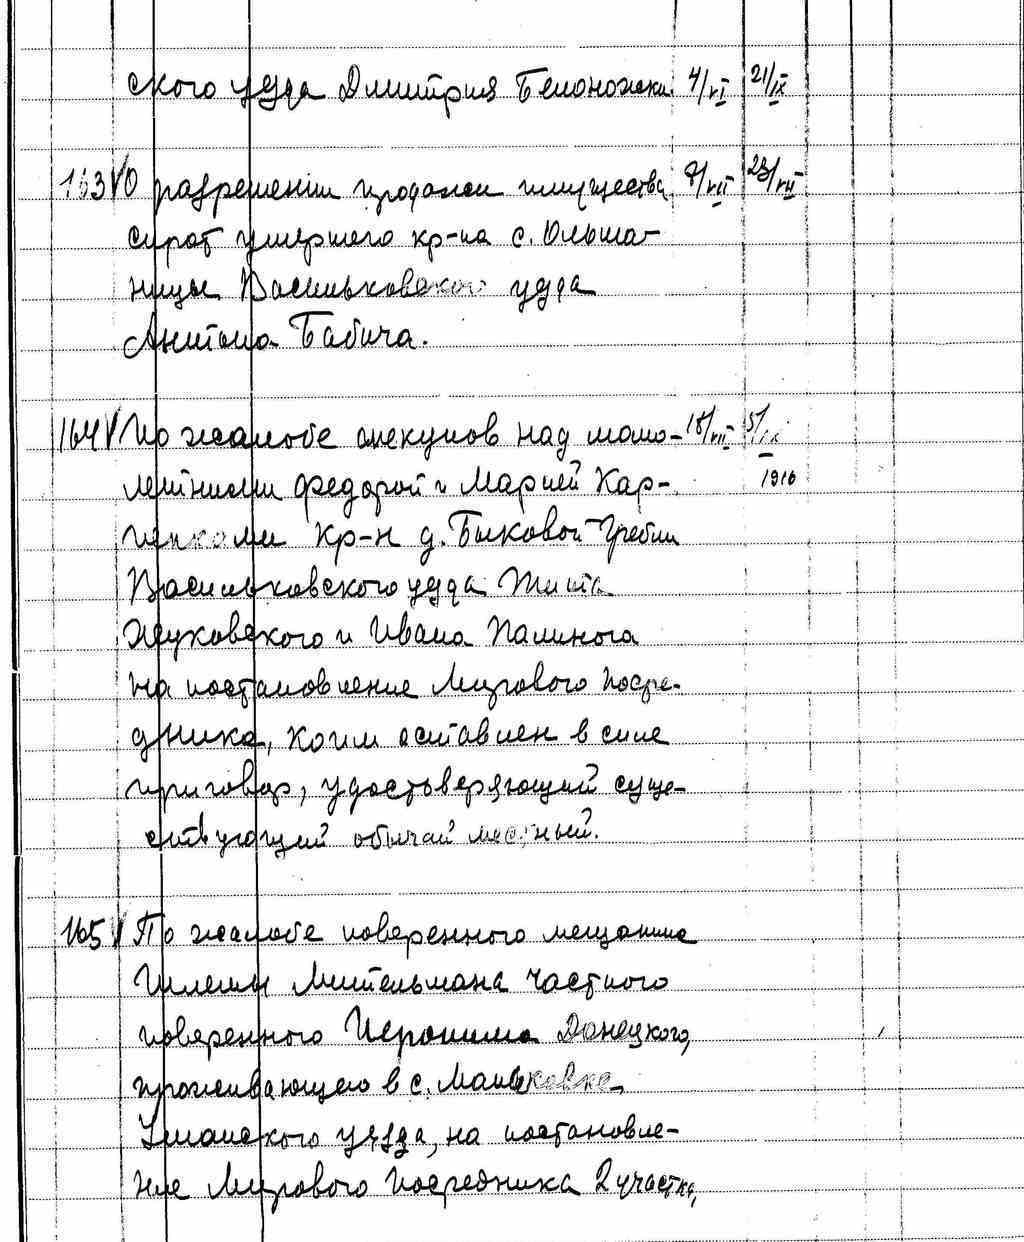 ского уезда Дмитрия Белоножки 4/VI 21/IX
163 V О разрешении продажи имущества 9/VII 23/VII
сирот умершего кр-на с. Ольша-
ницы Васильковского уезда
Антона Бабича.
164 V По жалобе опекунов над мало- 18/VII 5/IX
летними Федорой и Марией Кар- 1910
пенками кр-н д. Быковой Гребли
Васильковского уезда Тита
Жуковского и Ивана
на постановление Мирового Посре-
дника, коим оставлен в силе
приговор, удостьверяющий суще-
ствующий обычай местный.
165 V По жалобе поверенного мещанина
Шлемы Мительмана частного
поверенного Иеронима Донецкого,
проживающего в с. Маньковке
Уманского уезда, на постановле-
ние Мирового Посредника 2 участка,